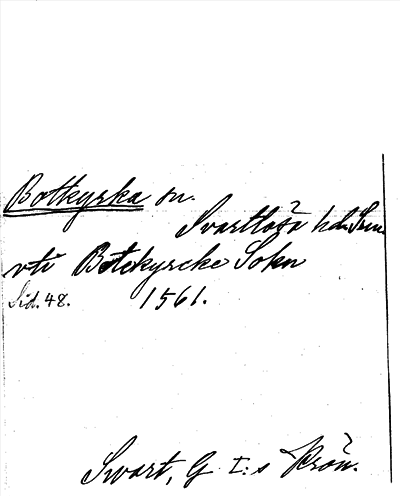 Botkyrka sn.
Svartlösa hd. Srm.
vti Botekyrcke Sokn
Sid. 48. 1561.
Swart, G. I:s Krön.